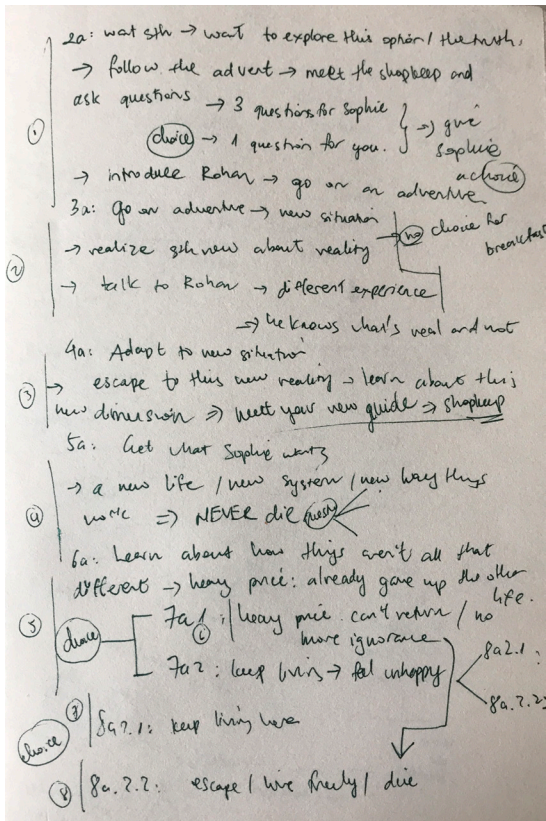 2a: wat sth → wat to explore this option / the truth.
→ follow the advent → meet the shopkeep and
ask questions → 3 questions for Sophie
① choice → 1 question for you. } → give Sophie a choice
→ introduce Rohan → go on an adventure
3a: Go on adventure → new situation
→ realize sth new about reality → no choice for breakfast
②
→ talk to Rohan → different experience
⇒ he knows what's real and not
4a: Adapt to new situation
③ → escape to this new reality → learn about this
new dimension ⇒ meet your new guide ⇒ shopkeep
5a: Get what Sophie wants
→ a new life / new system / new way things
④ work ⇒ NEVER die
6a: Learn about how things aren't all that
different → heavy price: already gave up the other life.
⑤ choice
7a1: heavy price. can't return / no
⑥ more ignorance
7a2: keep living → feel unhappy
8a2.1:
8a.2.2:
choice ⑦ 8a2.1: keep living here
⑧ 8a.2.2: escape / live freely / die